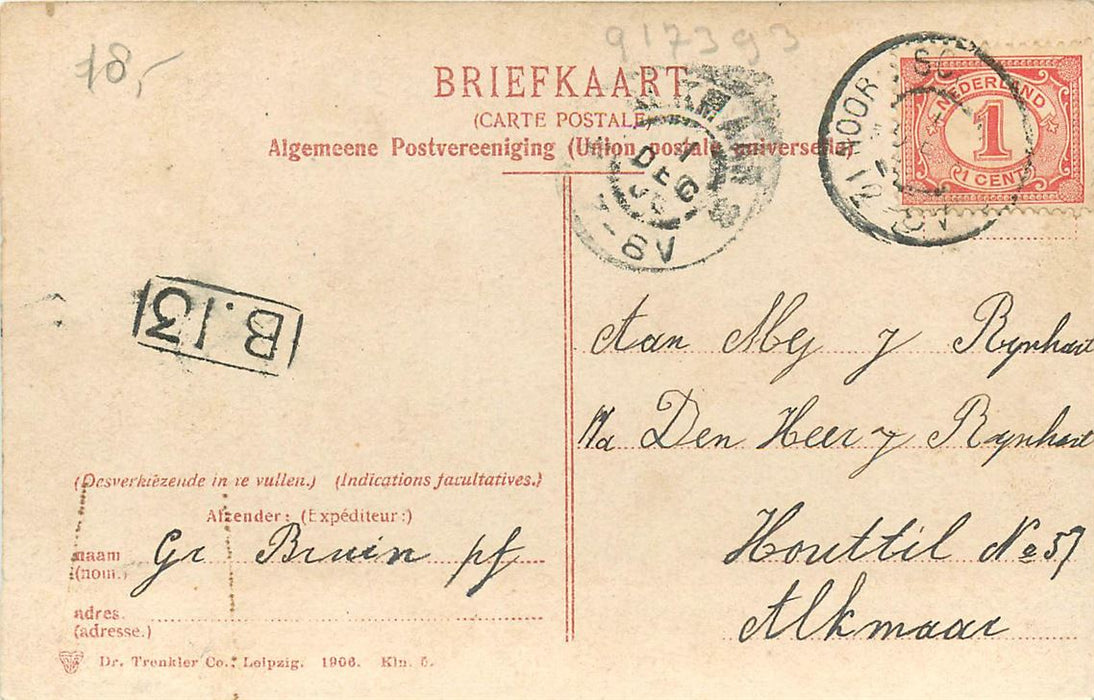 18,-
917393
BRIEFKAART
(CARTE POSTALE)
Algemeene Postvereeniging (Union postale universelle)
NEDERLAND
1
1 CENT
12
DEC
6V
B.13
Aan Mej J Rynhart
p/a Den Heer J Rynhart
Houttil No 57
Alkmaar
(Desverkiezende in te vullen.) (Indications facultatives.)
Afzender: (Expéditeur:)
naam Gr Bruin pf
(nom.)
adres.
(adresse.)
Dr. Trenkler Co., Leipzig. 1906. Kln. 5.